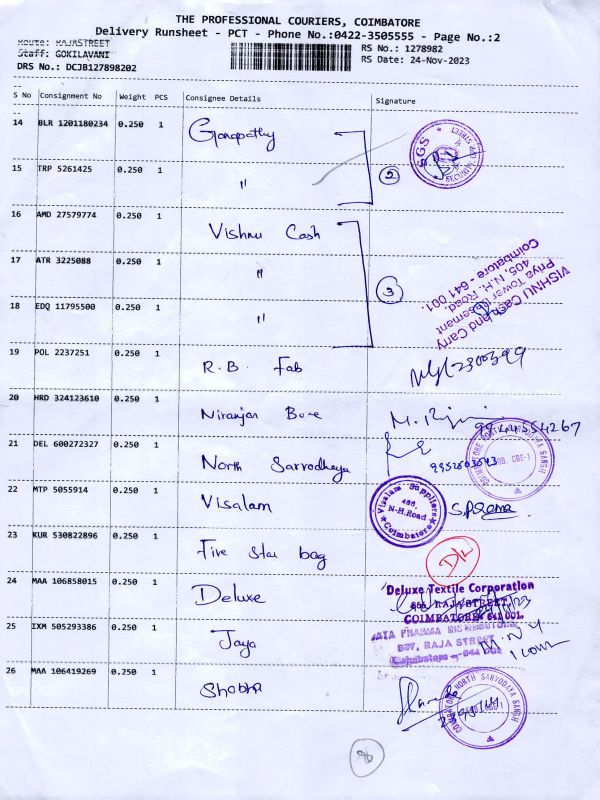 THE PROFESSIONAL COURIERS, COIMBATORE
Delivery Runsheet - PCT - Phone No.:0422-3505555 - Page No.:2
Route: RAJASTREET
Staff: GOKILAVANI
DRS No.: DCJB127898202
RS No.: 1278982
RS Date: 24-Nov-2023
S No Consignment No Weight PCS Consignee Details Signature
14 BLR 1201180234 0.250 1 Ganapathy
SGS
SECURITY
15 TRP 5261425 0.250 1 " 2
16 AMD 27579774 0.250 1 Vishnu Cash
17 ATR 3225088 0.250 1 "
18 EDQ 11795500 0.250 1 " 3
VISHNU Cash and Carry
Priya Tower
405, N.H. Road,
Coimbatore - 641 001.
19 POL 2237251 0.250 1 R.B. Fab
20 HRD 324123610 0.250 1 Niranjan
21 DEL 600272327 0.250 1 North Sarvodhaya
COIMBATORE NORTH SARVODAYA SANGH
CBE-1
22 MTP 5055914 0.250 1 Visalam
Visalam Suppliers
N-H.Road
Coimbatore
23 KUR 530822896 0.250 1 Five Star bag
D/L
24 MAA 106858015 0.250 1 Deluxe
Deluxe Textile Corporation
RAJA STREET
COIMBATORE - 641 001.
25 IXM 505293386 0.250 1 Jaya
RAJA STREET
Coimbatore - 641 001
26 MAA 106419269 0.250 1 Shobha
COIMBATORE NORTH SARVODAYA SANGH
8